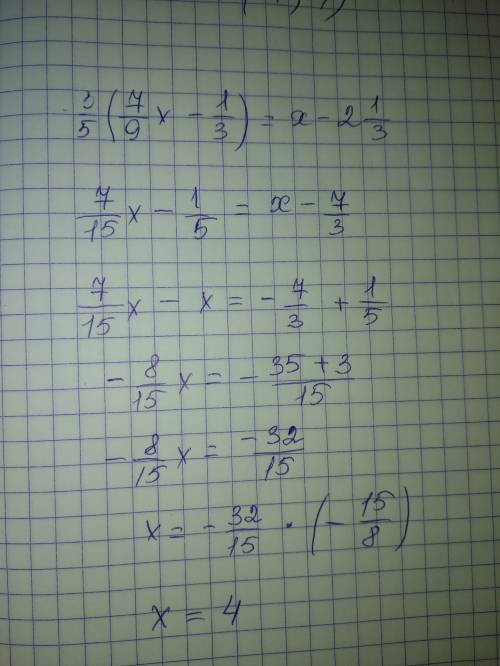 3/5 (7/9 x - 1/3) = x - 2 1/3
7/15 x - 1/5 = x - 7/3
7/15 x - x = - 7/3 + 1/5
- 8/15 x = - 35 + 3/15
- 8/15 x = -32/15
x = - 32/15 · (- 15/8)
x = 4